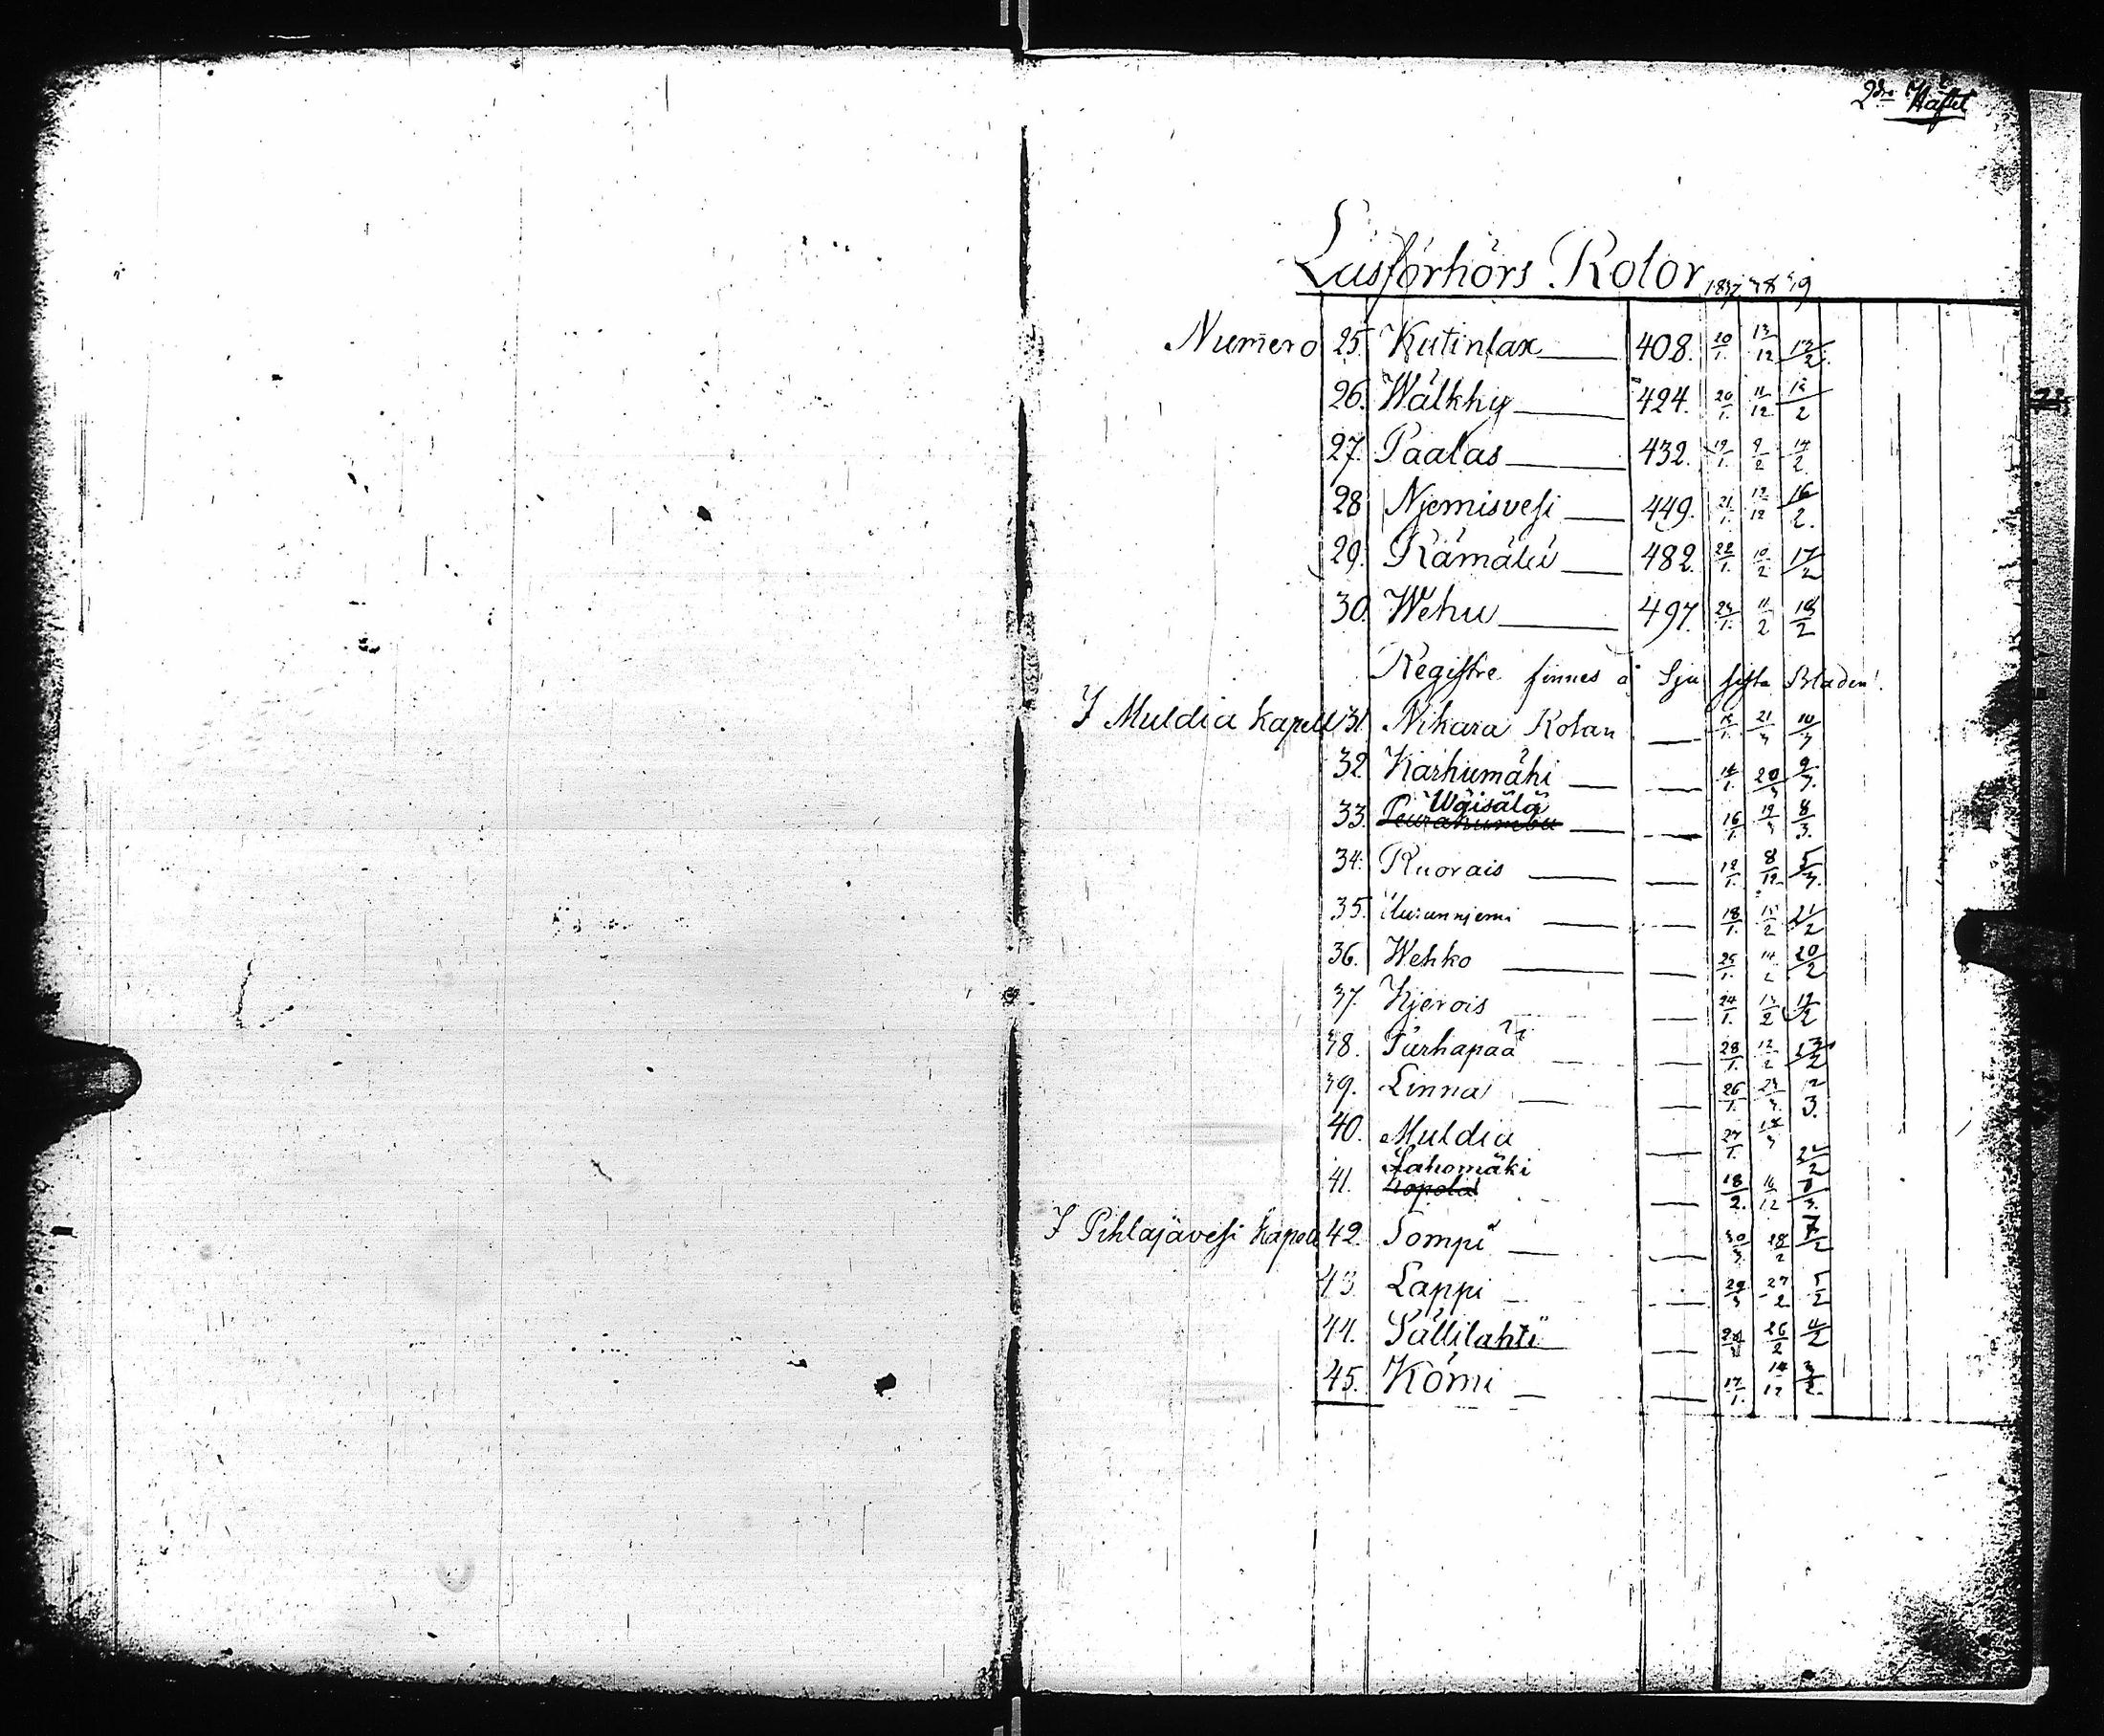 2dra Häftet
Läsförhörs Rotor 1847 48 49
Numero 25. Kutinlax 408. 20/1. 13/12 13/2.
26. Wälkky 424. 20/1. 11/12 12/2
27. Paalas 432. 19/1. 9/2 14/2.
28 Njemisvesi 449. 21/1. 12/12 16/2.
29. Kämäri 482. 22/1. 10/2 17/2
30. Wehu 497. 23/1. 11/2 19/2
Registre finnes å Sju sista Bladen.
I Muldia Kapell 31. Nikara Rotan 21/3 10/3
32. Karhumäki 20/3 9/3.
33. Wäisälä Peurahumbu 16/1. 19/3 8/3.
34. Ruorais 19/1. 8/12 5/3.
35. 18/1. 15/2 21/2
36. Wehko 25/1. 14/2 20/2
37. Kjerois 24/1. 13/2 19/2
38. Turhapää 28/1. 12/2
39. Linna 26/1. 23/3. 12/3.
40. Muldia 27/1.
41. Lahomäki 18/2. 16/12
I Pihlajävesi Kapell 42. Sompi 30/3. 28/2
43. Lappi 29/3 27/2 5/2
44. Sällilahti 26/2 4/2
45. Kömi 17/1. 14/12 3/2.